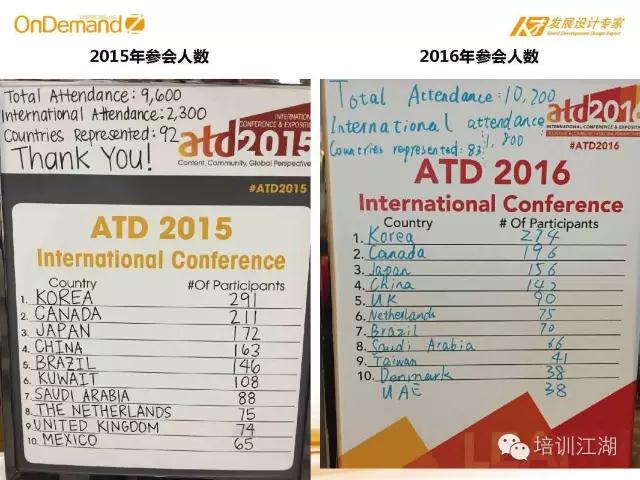 OnDemand
发展设计专家
Talent Development Design Expert
2015年参会人数
2016年参会人数
Total Attendance: 9,600
International Attendance: 2,300
Countries Represented: 92
Thank You!
INTERNATIONAL
CONFERENCE & EXPOSITION
atd2015
Content, Community, Global Perspectives
#ATD2015
ATD 2015
International Conference
Country #Of Participants
1. KOREA 291
2. CANADA 211
3. JAPAN 172
4. CHINA 163
5. BRAZIL 146
6. KUWAIT 108
7. SAUDI ARABIA 88
8. THE NETHERLANDS 75
9. UNITED KINGDOM 74
10. MEXICO 65
Total Attendance: 10,200
International attendance
: 1,800
Countries represented: 83
atd2016
INTERNATIONAL CONFERENCE & EXPOSITION
#ATD2016
ATD 2016
International Conference
Country # Of Participants
1. Korea 274
2. Canada 196
3. Japan 156
4. China 142
5. UK 90
6. Netherlands 75
7. Brazil 70
8. Saudi Arabia 66
9. Taiwan 41
10. Denmark 38
UAE 38
培训江湖